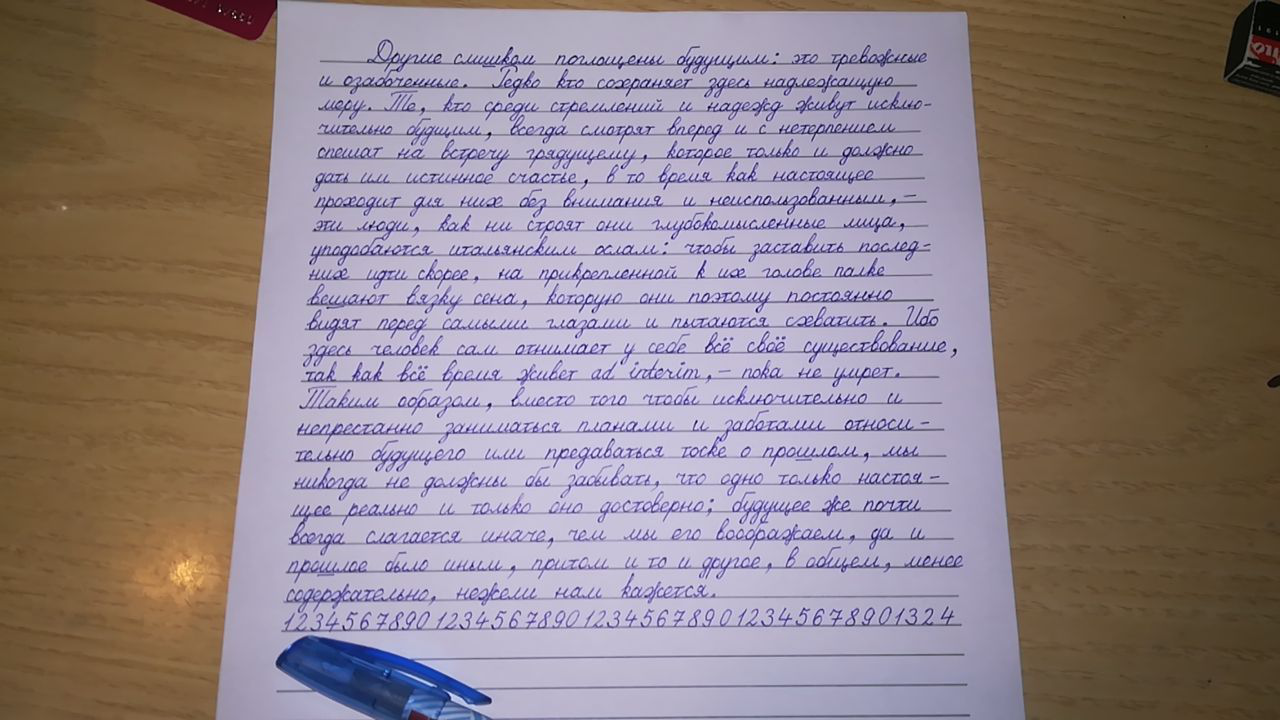 Другие слишком поглощены будущим: это тревожные
и озабоченные. Редко кто сохраняет здесь надлежащую
меру. Те, кто среди стремлений и надежд живут исклю-
чительно будщим, всегда смотрят вперед и с нетерпением
спешат на встречу грядущему, которое только и должно
дать им истинное счастье, в то время как настоящее
проходит для них без внимания и неиспользованным, –
эти люди, как ни строят они глубокомысленные лица,
уподобаются итальянским ослам: чтобы заставить послед-
них идти скорее, на прикрепленной к их голове палке
вешают вязку сена, которую они поэтому постоянно
видят перед самыми глазами и пытаются схватить. Ибо
здесь человек сам отнимает у себе всё своё существование,
так как всё время живет ad interim, – пока не умрет.
Таким образом, вместо того чтобы исключительно и
непрестанно заниматься планами и заботами относи-
тельно будущего или предаваться тоске о прошлом, мы
никогда не должны бы забывать, что одно только настоя-
щее реально и только оно достоверно; будущее же почти
всегда слагается иначе, чем мы его вооб​ражаем, да и
прошлое было иным, притом и то и другое, в общем, менее
содержательно, нежели нам кажется.
1234567890 1234567890 1234567890 1234567890 1324